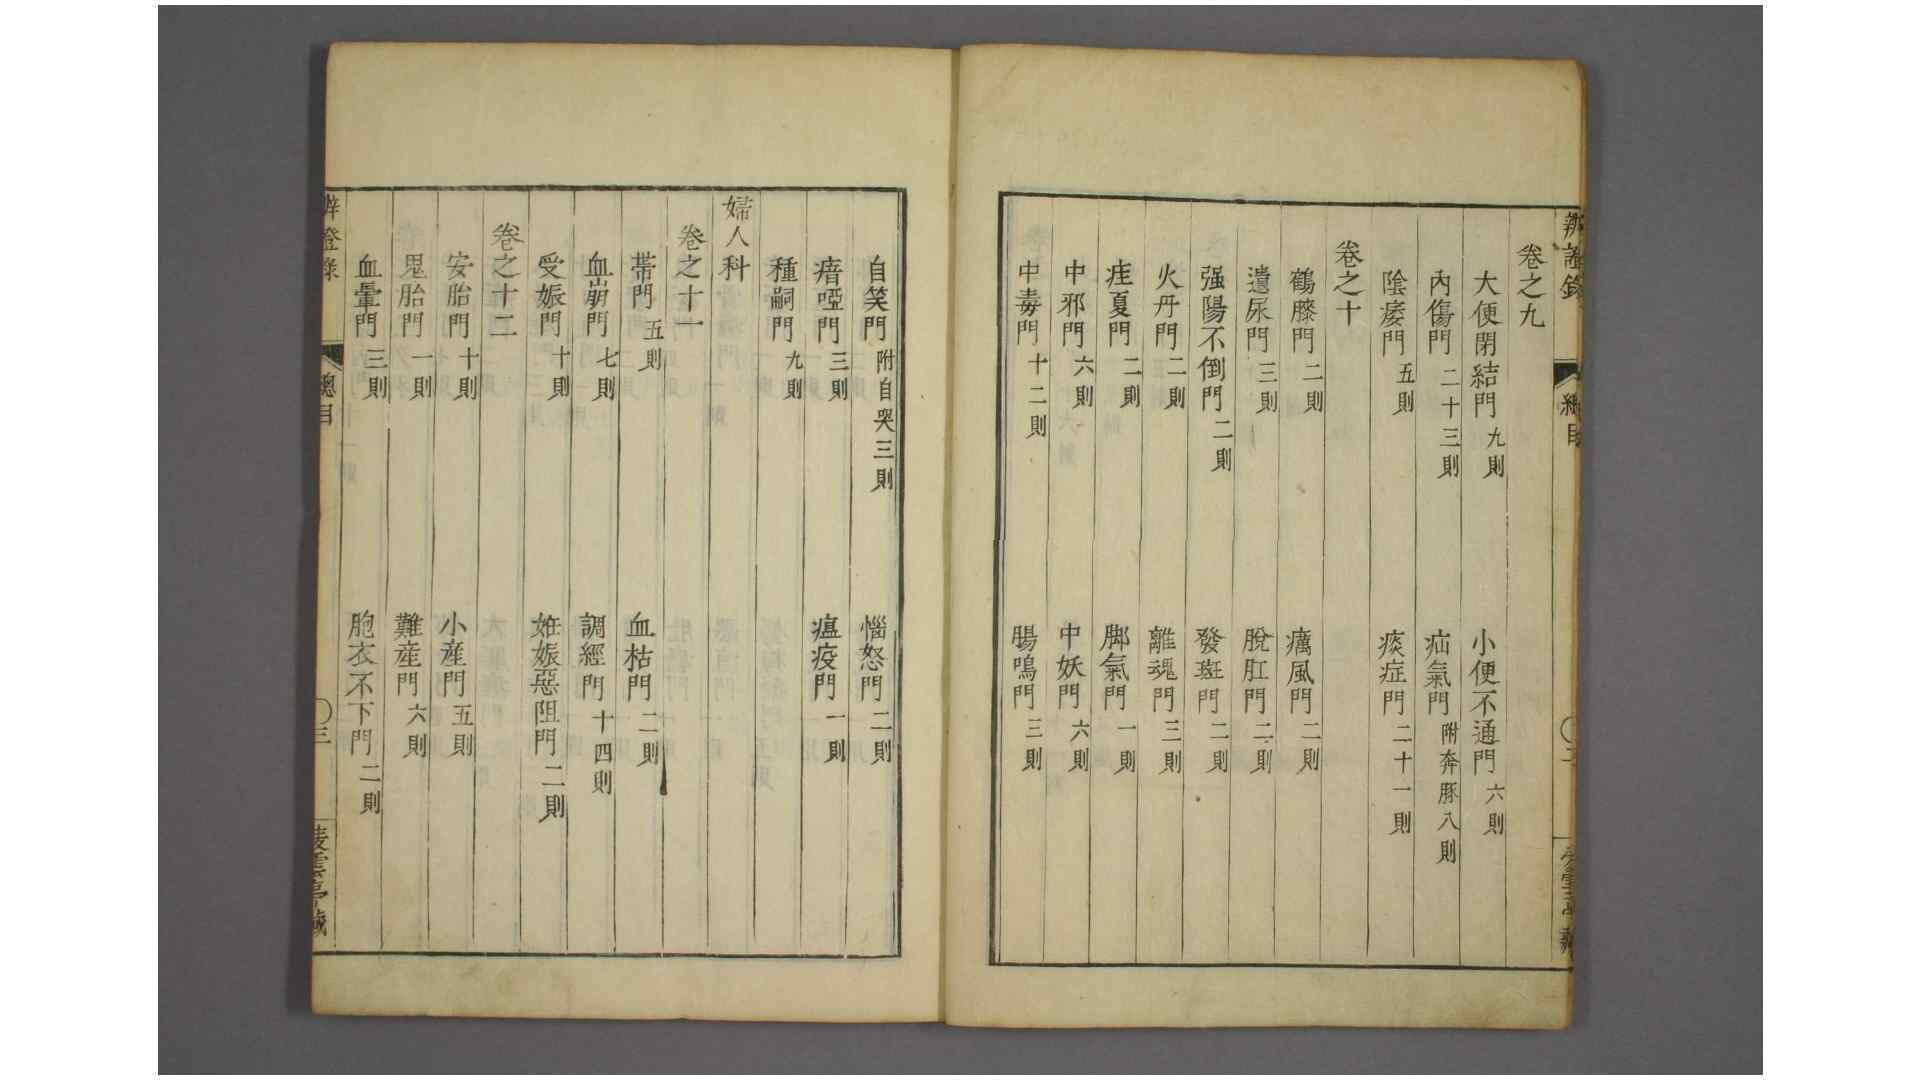 卷之九
大便閉結門 九則 小便不通門 六則
內傷門 二十三則 疝氣門 附奔豚八則
陰痿門 五則 痰症門 二十一則
卷之十
鶴膝門 二則 癘風門 二則
遺尿門 三則 脫肛門 二則
强陽不倒門 二則 發斑門 二則
火丹門 二則 離魂門 三則
疰夏門 二則 脚氣門 一則
中邪門 六則 中妖門 六則
中毒門 十二則 腸鳴門 三則
自笑門 附自哭三則 惱怒門 二則
瘖啞門 三則 瘟疫門 一則
種嗣門 九則
婦人科
卷之十一
帶門 五則 血枯門 二則
血崩門 七則 調經門 十四則
受娠門 十則 姙娠惡阻門 二則
卷之十二
安胎門 十則 小產門 五則
鬼胎門 一則 難產門 六則
血暈門 三則 胞衣不下門 二則
總目 三